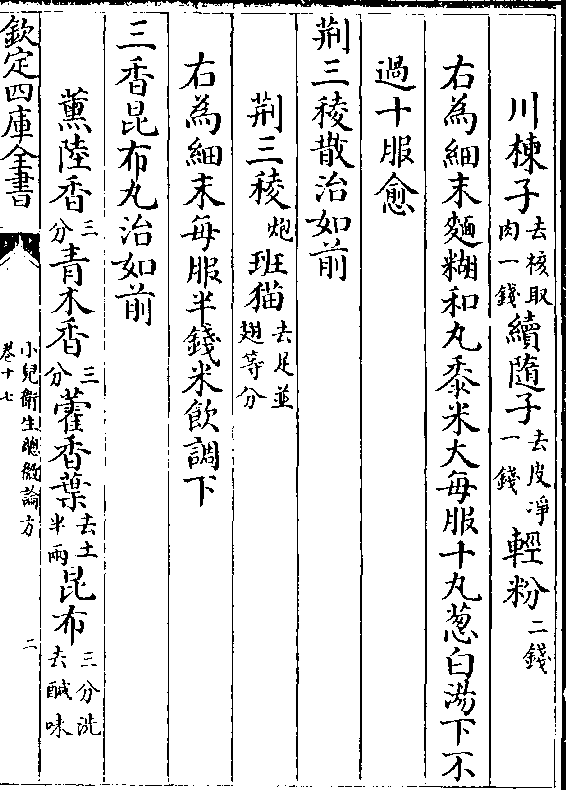 川楝子去核取肉一錢續隨子去皮凈一錢輕粉二錢
右為細末麵糊和丸黍米大每服十丸葱白湯下不
過十服愈
荆三稜散治如前
荆三稜炮班猫去足並翅等分
右為細末每服半錢米飲調下
三香昆布丸治如前
薰陸香三分青木香三分藿香葉去土半兩昆布三分洗去醎味
欽定四庫全書
小兒衛生總微論方
卷十七
二